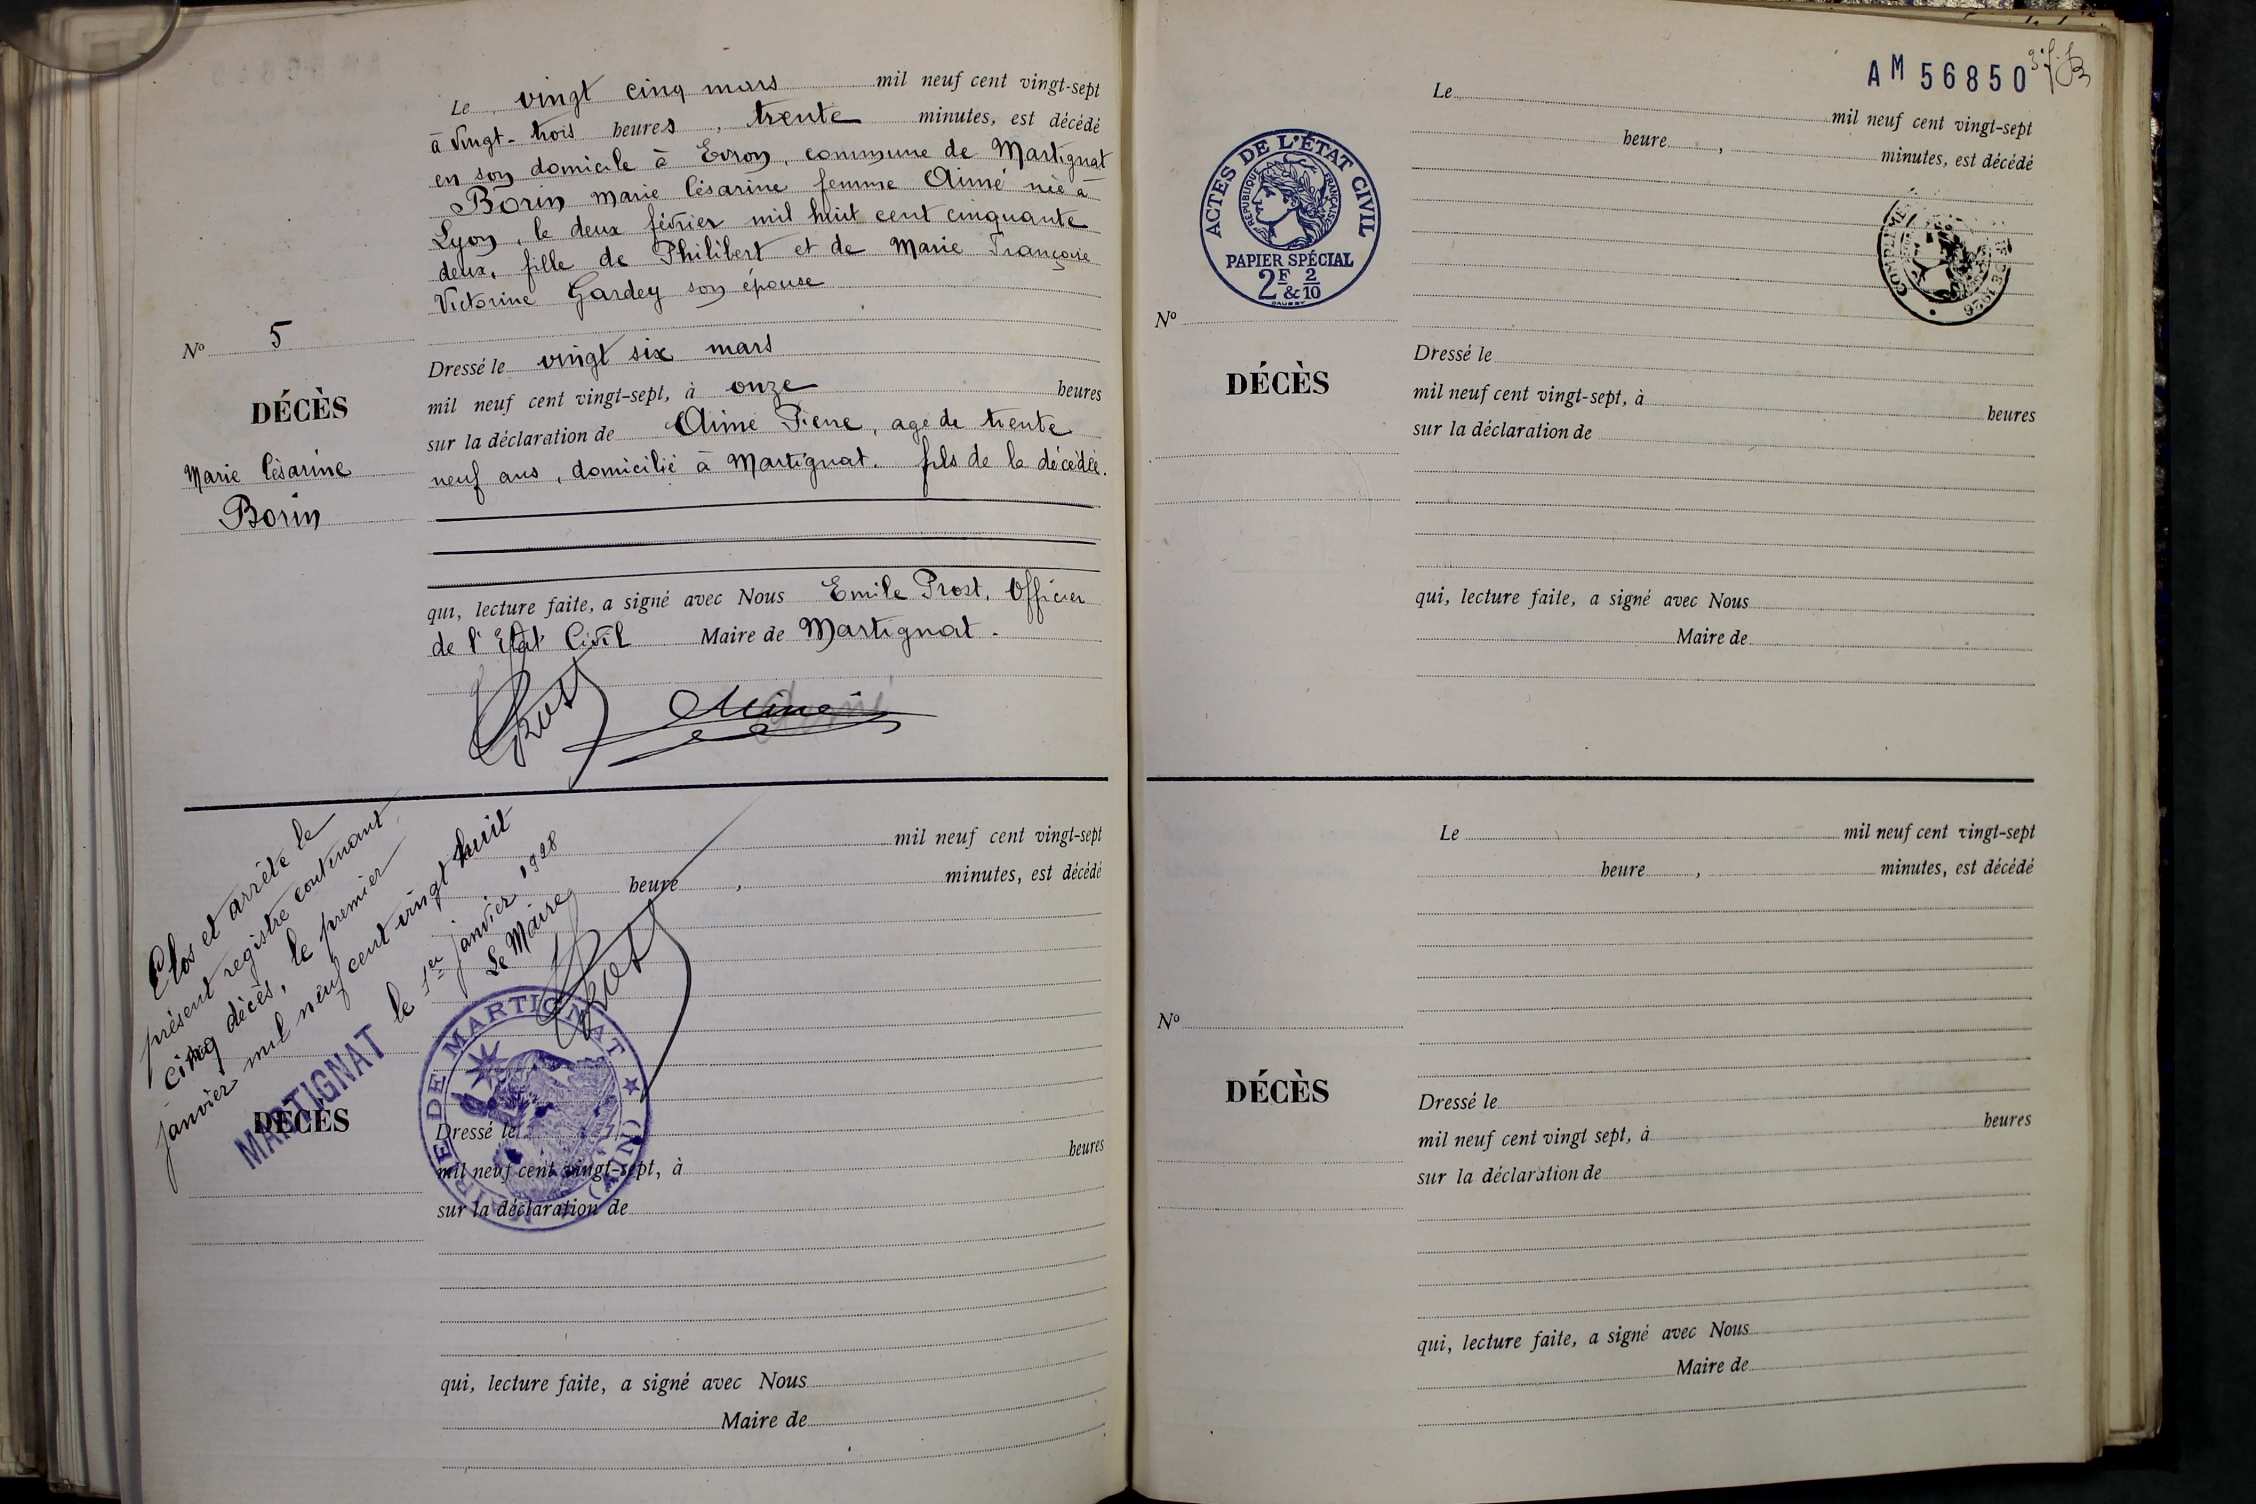 Le vingt cinq mars mil neuf cent vingt-sept
à vingt-trois heures, trente minutes, est décédé
en son domicile à Evron, commune de Martignat
Borin Marie Césarine femme Aimé née à
Lyon, le deux février mil huit cent cinquante
deux, fille de Philibert et de Marie Françoise
Victorine Gardey son épouse
No 5
DÉCÈS
Marie Césarine
Borin
Dressé le vingt six mars
mil neuf cent vingt-sept, à onze heures
sur la déclaration de Aimé Pierre, age de trente
neuf ans, domicilié à Martignat. fils de la décédée.
qui, lecture faite, a signé avec Nous Emile Prost, Officier
de l'Etat Civil Maire de Martignat.
Prost
Aimé
Clos et arrêté le
présent registre contenant
cinq décès, le premier
janvier mil neuf cent vingt huit
MARTIGNAT le 1er janvier 1928
Le Maire
Prost
MAIRIE DE MARTIGNAT ★ (AIN)
mil neuf cent vingt-sept
heure , minutes, est décédé
DÉCÈS
Dressé le
mil neuf cent vingt-sept, à heures
sur la déclaration de
qui, lecture faite, a signé avec Nous
Maire de
AM 56850
ACTES DE L'ÉTAT CIVIL
RÉPUBLIQUE FRANÇAISE
PAPIER SPÉCIAL
2F & 2/10
Le mil neuf cent vingt-sept
heure , minutes, est décédé
No
DÉCÈS
Dressé le
mil neuf cent vingt-sept, à heures
sur la déclaration de
qui, lecture faite, a signé avec Nous
Maire de
Le mil neuf cent vingt-sept
heure , minutes, est décédé
No
DÉCÈS
Dressé le
mil neuf cent vingt sept, à heures
sur la déclaration de
qui, lecture faite, a signé avec Nous
Maire de